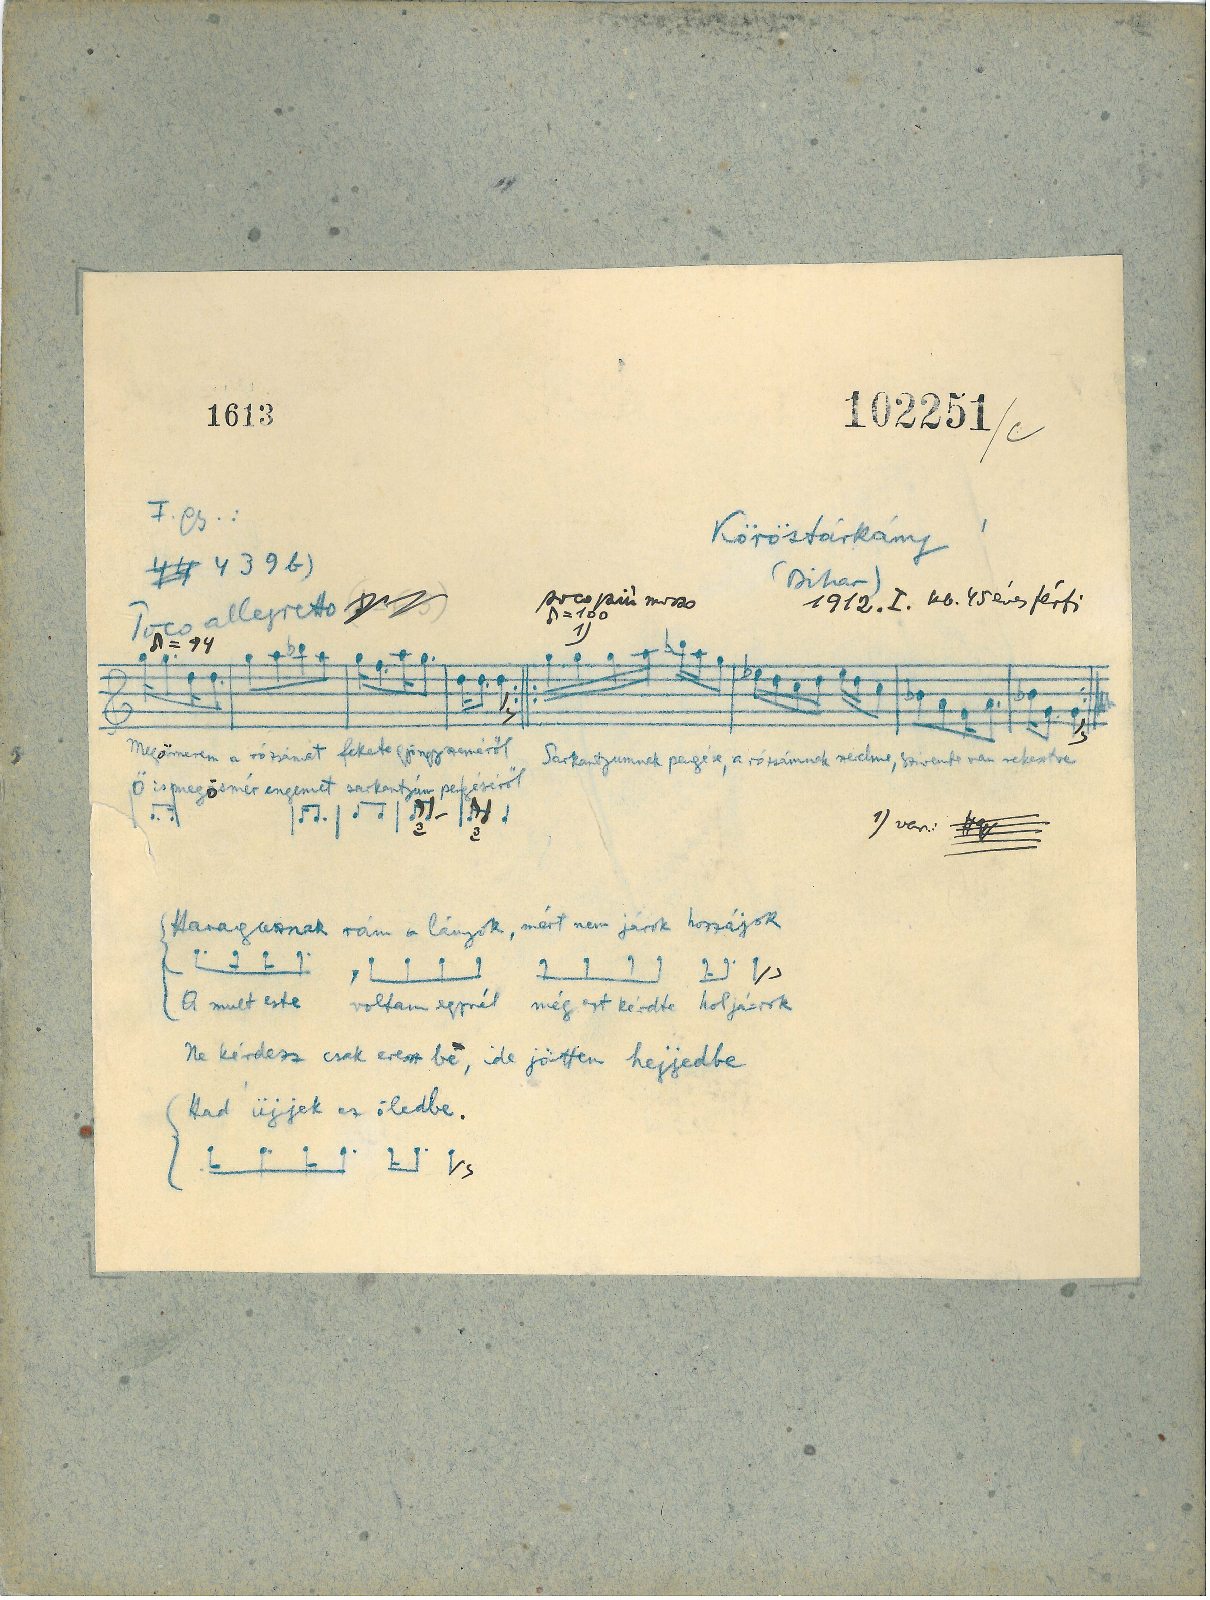 1613
102251/c
F. gy.:
439b)
Köröstárkány
(Bihar)
1912. I. kb. 45 éves férfi
Poco allegretto
♪ = 94
poco più mosso
♪ = 100
1)
Megösmerem a rózsámat fekete gyöngyszeméről
Sarkantyumnak pengése, a rózsámnak
van rekesztve
Ő is megösmér engemet sarkantyúm pengéséről
2
2
1) var.:
Haragusznak rám a lányok, mért nem járok hozzájok
A mult este voltam egynél még azt kérdte hol járok
Ne kérdezz csak eressz be, ide jöttem hejjedbe
Had üjjek az öledbe.